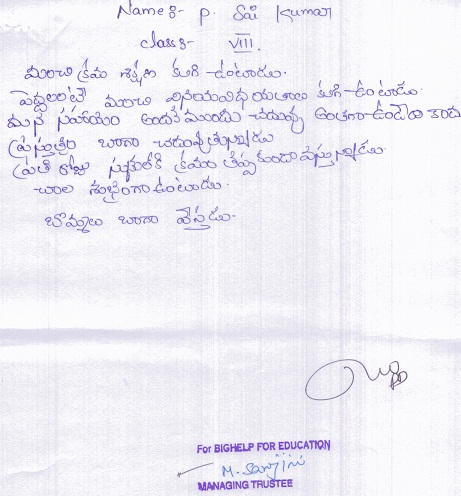 Name :- P. Sai Kumar
Class :- VIII.
మంచి క్రమ శిక్షణ కలిగి ఉంటాడు.
పెద్దలంటే మంచి వినయవిధేయతలు కలిగి ఉంటాడు.
మన సహాయం అందక ముందు చదువు అంతగా ఉండేది కాదు
ప్రస్తుతం బాగా చదువుతున్నాడు
ప్రతి రోజు స్కూలుకి క్రమం తప్పకుండా వస్తున్నాడు.
చాల శుభ్రంగా ఉంటాడు.
బొమ్మలు బాగా వేస్తాడు.
For BIGHELP FOR EDUCATION
M. Sanjini
MANAGING TRUSTEE